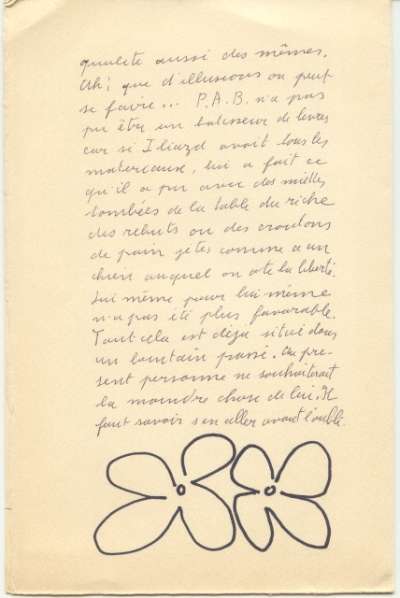 qualité aussi des mêmes.
Ah! que d'illusions on peut
se faire... P.A.B. n'a pas
pu être un batisseur de livres
car si Iliazd avait tous les
materiaux, lui a fait ce
qu'il a pu avec des miettes
tombées de la table du riche
des rebuts ou des croutons
de pain jetes comme a un
chien auquel on ote la liberté.
Lui même pour lui même
n'a pas été plus favorable.
Tout cela est deja situé dans
un lointain passé. Au pre-
sent personne ne souhaiterait
la moindre chose de lui. Il
faut savoir s'en aller avant l'oubli.